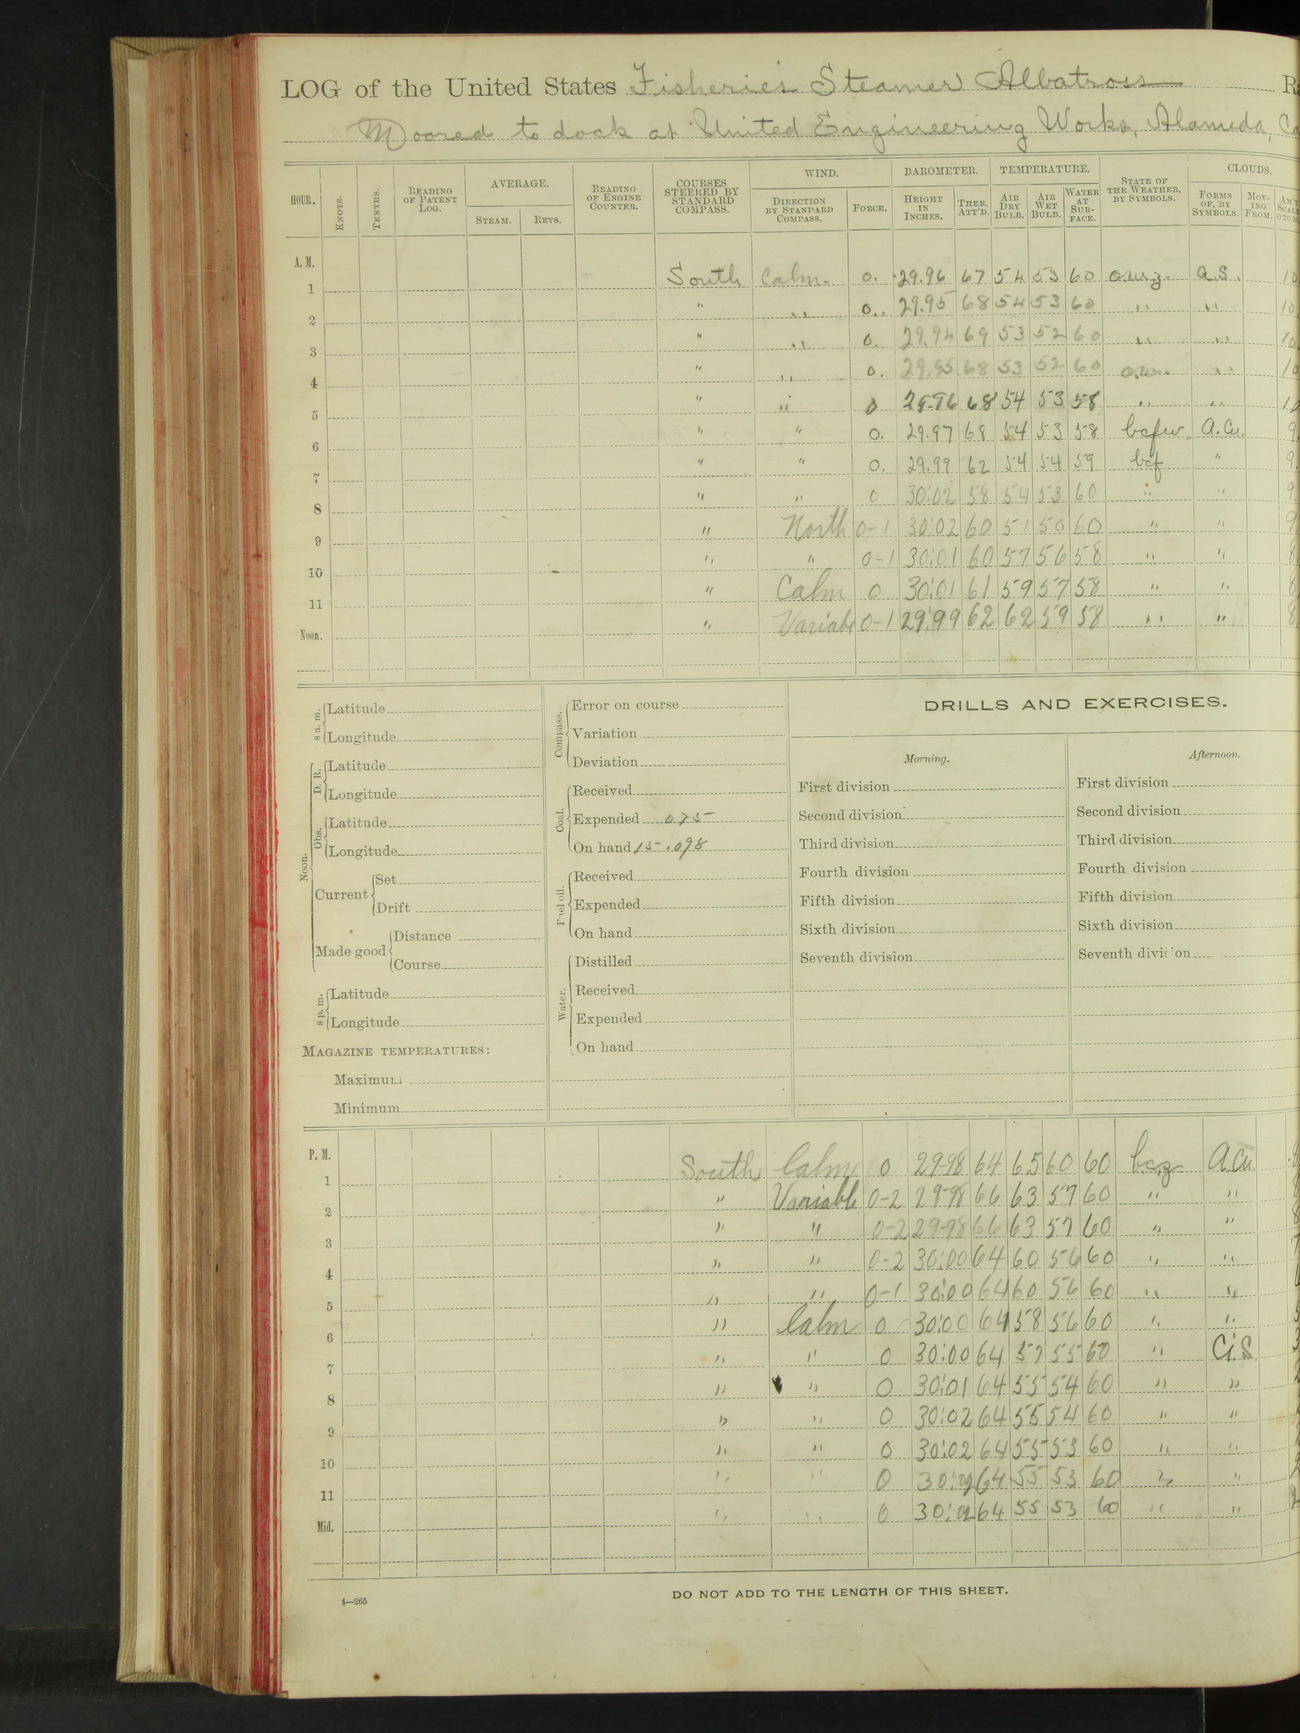 LOG of the United States Fisheries Steamer Albatross
Moored to dock at United Engineering Works, Alameda,
HOUR. KNOTS. TENTHS. READING OF PATENT LOG. AVERAGE. STEAM. REVS. READING OF ENGINE COUNTER. COURSES STEERED BY STANDARD COMPASS. WIND. DIRECTION BY STANDARD COMPASS. FORCE. BAROMETER. HEIGHT IN INCHES. THER. ATT'D. TEMPERATURE. AIR DRY BULB. AIR WET BULB. WATER AT SURFACE. STATE OF THE WEATHER, BY SYMBOLS. CLOUDS. FORMS OF, BY SYMBOLS. MOVING FROM.
A. M.
1 South Calm. 0. 29.96 67 54 53 60 o.w.z. a.s. 10
2 " " 0. 29.95 68 54 53 60 " " 10
3 " " 0. 29.94 69 53 52 60 " " 10
4 " " 0. 29.95 68 53 52 60 o.w. " 10
5 " " 0 29.96 68 54 53 58 " " 10
6 " " 0. 29.97 68 54 53 58 bcfw. a.cu. 9
7 " " 0. 29.99 62 54 54 59 bcf " 9
8 " " 0 30:02 58 54 53 60 " " 9
9 " North 0-1 30:02 60 51 50 60 " " 9
10 " " 0-1 30:01 60 57 56 58 " " 8
11 " Calm 0 30:01 61 59 57 58 " " 8
Noon. " Variable 0-1 29:99 62 62 59 58 " " 8
8 a. m. Latitude
Longitude
Noon. D. R. Latitude
Longitude
Obs. Latitude
Longitude
Current Set
Drift
Made good Distance
Course
8 p. m. Latitude
Longitude
MAGAZINE TEMPERATURES:
Maximum
Minimum
Compass. Error on course
Variation
Deviation
Coal. Received
Expended 075
On hand 15.098
Fuel oil. Received
Expended
On hand
Water. Distilled
Received
Expended
On hand
DRILLS AND EXERCISES.
Morning.
First division
Second division
Third division
Fourth division
Fifth division
Sixth division
Seventh division
Afternoon.
First division
Second division
Third division
Fourth division
Fifth division
Sixth division
Seventh division
P. M.
1 South Calm 0 29.98 64 65 60 60 bcz A.Cu. 8
2 " Variable 0-2 29.98 66 63 57 60 " "
3 " " 0-2 29.98 66 63 57 60 " "
4 " " 0-2 30:00 64 60 56 60 " "
5 " " 0-1 30:00 64 60 56 60 " "
6 " Calm 0 30:00 64 58 56 60 " "
7 " " 0 30:00 64 57 55 60 " Ci.S
8 " " 0 30:01 64 55 54 60 " "
9 " " 0 30:02 64 55 54 60 " "
10 " " 0 30:02 64 55 53 60 " "
11 " " 0 30:02 64 55 53 60 " "
Mid. " " 0 30:02 64 55 53 60 " " 2
4—265
DO NOT ADD TO THE LENGTH OF THIS SHEET.